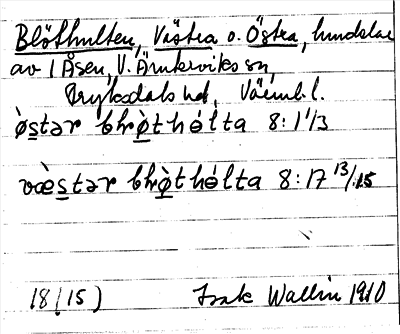 Blöthulten, Västra o. Östra, hundslae
av 1 Åsen, V. Ämterviks sn,
Fryksdals hd, Värml.
òstər bḷọ̀thólta 8:1 1/13
væ̀stər bḷọ̀thólta 8:17 13/15
18(15) Isak Wallin 1910